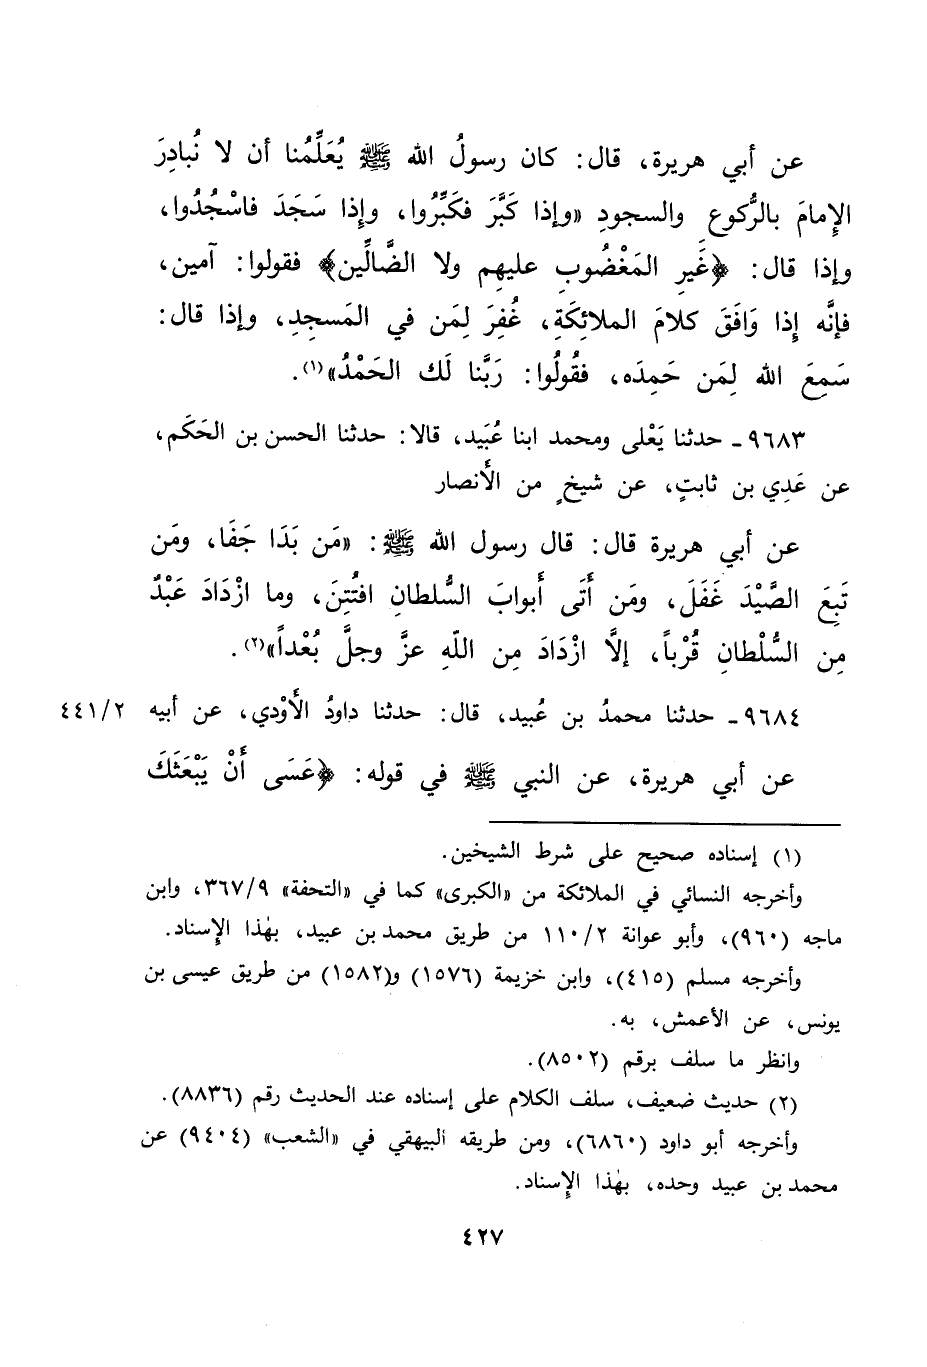 عن أبي هريرة، قال: كان رسولُ الله ﷺ يُعَلِّمُنا أن لا نُبادِرَ
الإِمامَ بالرُّكوعِ والسجودِ «وإذا كَبَّرَ فكَبِّرُوا، وإِذا سَجَدَ فاسْجُدُوا،
وإذا قال: ﴿غَيرِ المَغْضُوبِ عليهِم ولا الضَّالِّين﴾ فقولوا: آمين،
فإنَّه إِذا وَافَقَ كلامَ الملائِكَةِ، غُفِرَ لِمَن في المَسجِدِ، وإذا قال:
سَمِعَ الله لِمَن حَمِدَه، فقُولُوا: رَبَّنا لَك الحَمْدُ»(١).
٩٦٨٣ـ حدثنا يَعْلى ومحمد ابنا عُبَيد، قالا: حدثنا الحسن بن الحَكَم،
عن عَدِي بن ثابتٍ، عن شيخٍ من الأَنصار
عن أبي هريرة قال: قال رسول الله ﷺ: «مَن بَدَا جَفَا، ومَن
تَبِعَ الصَّيْدَ غَفَلَ، ومَن أَتَى أَبوابَ السُّلطانِ افتُتِنَ، وما ازْدَادَ عَبْدٌ
مِن السُّلْطانِ قُرْباً، إلَّا ازْدَادَ مِن اللّهِ عزَّ وجلَّ بُعْداً»(٢).
٩٦٨٤ـ حدثنا محمدُ بن عُبيد، قال: حدثنا داودُ الأَوْدي، عن أبيه ٤٤١/٢
عن أبي هريرة، عن النبي ﷺ في قوله: ﴿عَسَى أَنْ يَبْعَثَكَ
(١) إسناده صحيح على شرط الشيخين.
وأخرجه النسائي في الملائكة من «الكبرى» كما في «التحفة» ٣٦٧/٩، وابن
ماجه (٩٦٠)، وأبو عوانة ١١٠/٢ من طريق محمد بن عبيد، بهٰذا الإِسناد.
وأخرجه مسلم (٤١٥)، وابن خزيمة (١٥٧٦) و(١٥٨٢) من طريق عيسى بن
يونس، عن الأعمش، به.
وانظر ما سلف برقم (٨٥٠٢).
(٢) حديث ضعيف، سلف الكلام على إسناده عند الحديث رقم (٨٨٣٦).
وأخرجه أبو داود (٦٨٦٠)، ومن طريقه البيهقي في «الشعب» (٩٤٠٤) عن
محمد بن عبيد وحده، بهٰذا الإِسناد.
٤٢٧